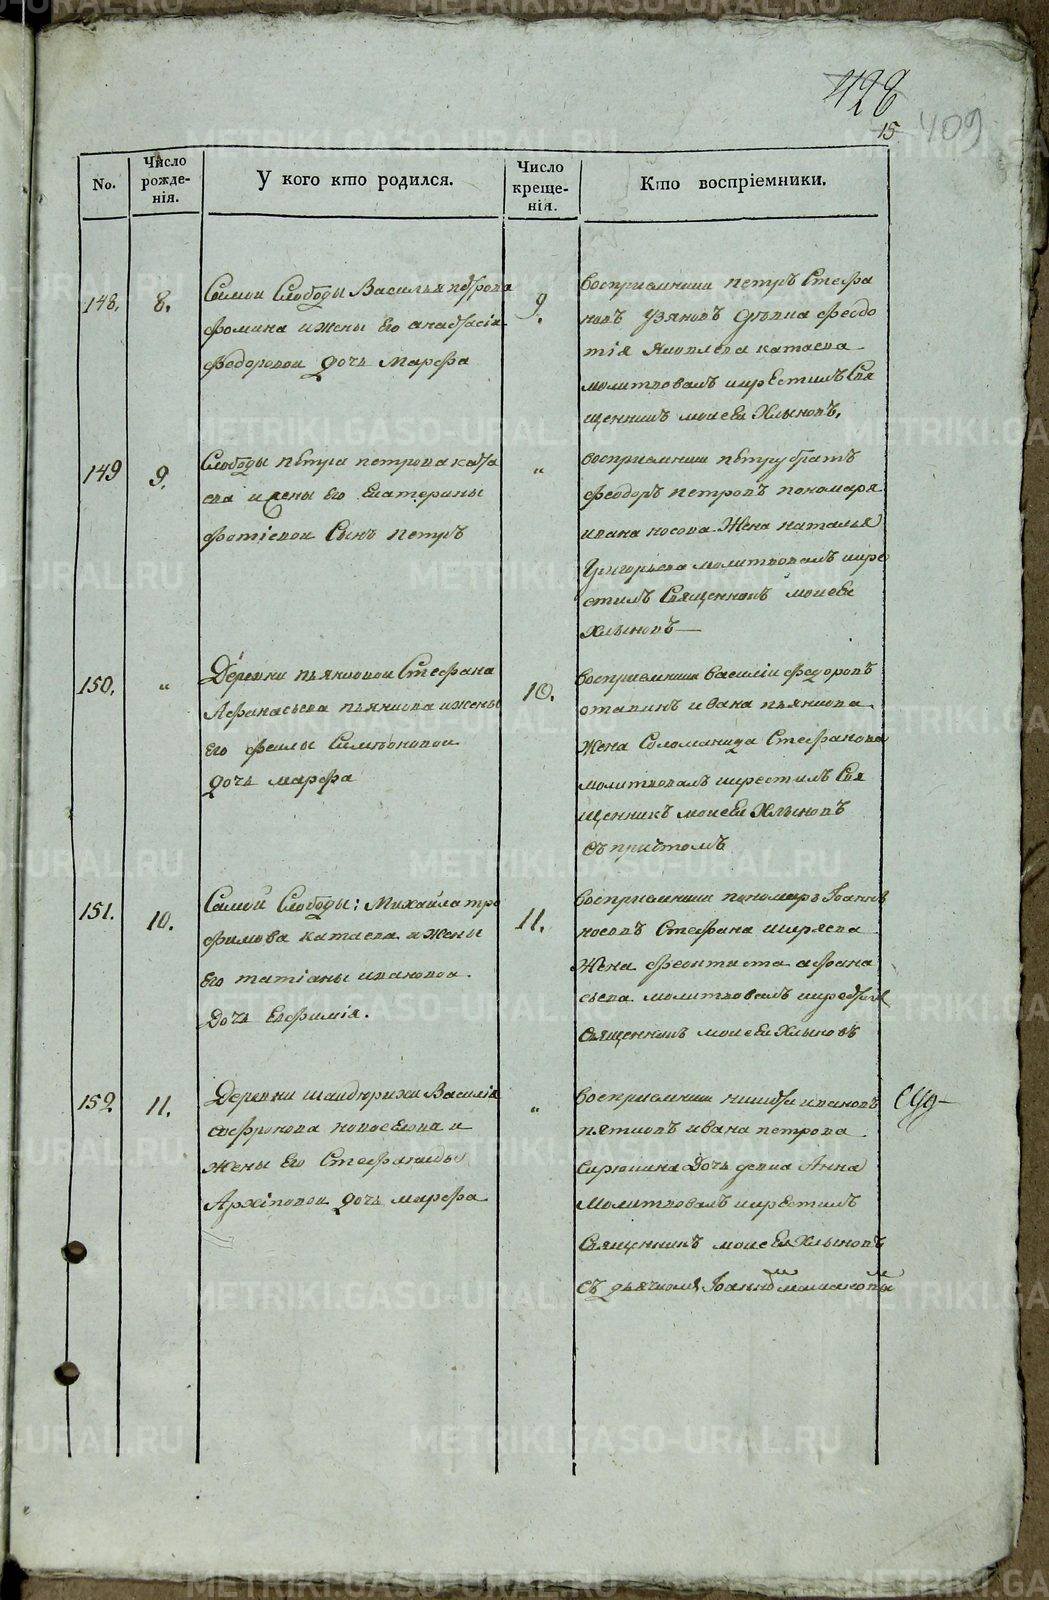 428
15
409
No.
Число рожде-нія.
У кого кто родился.
Число креще-нія.
Кто воспріемники.
148.
8.
Самои Слободы Василья петрова
фомина и жены Его анастасіи
федоровои дочь Марфа
9.
восприемники петръ Стефа
новъ Узяновъ девка феодо
тія Яковлева катаева
молитвовалъ и крЕстилъ Свя
щенникъ моисеи Хлыновъ.
149
9.
Слободы пЕтра петрова ката
ева и жены Его Екатерины
фотіевои Сынъ петръ
"
восприемники пЕтру братъ
феодоръ петровъ пономаря
ивана носова Жена наталья
Григорьева молитвовалъ и кре
стилъ Священникъ моисеи
Хлыновъ
150.
"
Деревни пьянковои Стефана
Афанасьева пьянкова и жены
Его феклы Симеоновои
дочь марфа
10.
восприемники василіи федоровъ
ивана пьянкова
Жена Соломанида Стефанова
молитвовалъ и крестилъ Свя
щенникъ моисеи Хлыновъ
съ причтомъ
151.
10.
Самой Слободы: Михайла тро
фимова катаева и жены
Его татіаны ивановои.
Дочь Евфимія.
11.
восприемники пономарь Іоаннъ
носовъ Стефана ширяева
Жена феоктиста афана
сьева молитвовалъ и крестилъ
Священникъ моисеи Хлыновъ
152
11.
Деревни шайдурихи Василія
софронова новоселова и
жены Его Стефаниды
Архіповои дочь марфа
"
восприемники никита ивановъ
пятковъ ивана петрова
Сирюкина Дочь девка Анна
молитвовалъ и крЕстилъ
Священникъ моисеи Хлыновъ
съ дьячкомъ Іоанномъ
METRIKI.GASO-URAL.RU